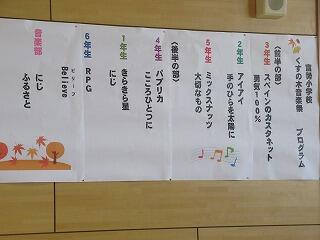 富勢小学校
くすの木音楽祭　プログラム
〈前半の部〉
３年生　スペインのカスタネット
勇気１００％
２年生　アイアイ
手のひらを太陽に
５年生　ミックスナッツ
大切なもの
〈後半の部〉
４年生　パプリカ
こころひとつに
１年生　きらきら星
にじ
６年生　ＲＰＧ
ビリーブ
Believe
音楽部　にじ
ふるさと